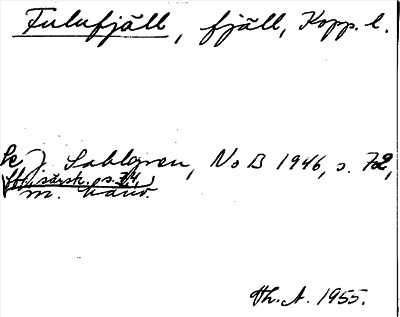 Fulufjäll, fjäll, Kopp. l.
Se J. Sahlgren, NoB 1946, s. 72,
särsk. s. 74,
m. hänv.
Hh. A. 1955.